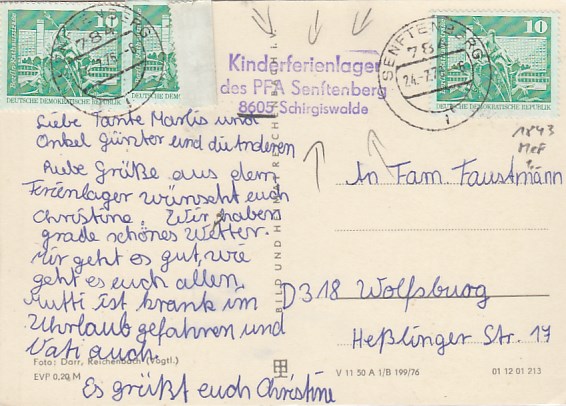 10
10
DEUTSCHE DEMOKRATISCHE REPUBLIK
DEUTSCHE DEM
SENFTENBERG
784
Kinderferienlager
des PFA Senftenberg
8605 Schirgiswalde
SENFTENBERG
784
24.-7.7
DEUTSCHE DEMOKRATISCHE REPUBLIK
1843
MeF
Liebe Tante Marlis und
Onkel Günter und die Anderen
Liebe Grüße aus dem
Ferienlager wünscht euch
Christine. Wir haben
grade schönes Wetter.
Mir geht es gut, wie
geht es euch allen,
Mutti ist krank im
Uhrlaub gefahren und
Vati auch.
Es grüßt euch Christine
An Fam. Faustmann
D 318 Wolfsburg
Heßlinger Str. 17
BILD UND HEIMAT REICHENBACH I. V.
Foto: Darr, Reichenbach (Vogtl.)
EVP 0,20 M
V 11 50 A 1/B 199/76
01 12 01 213